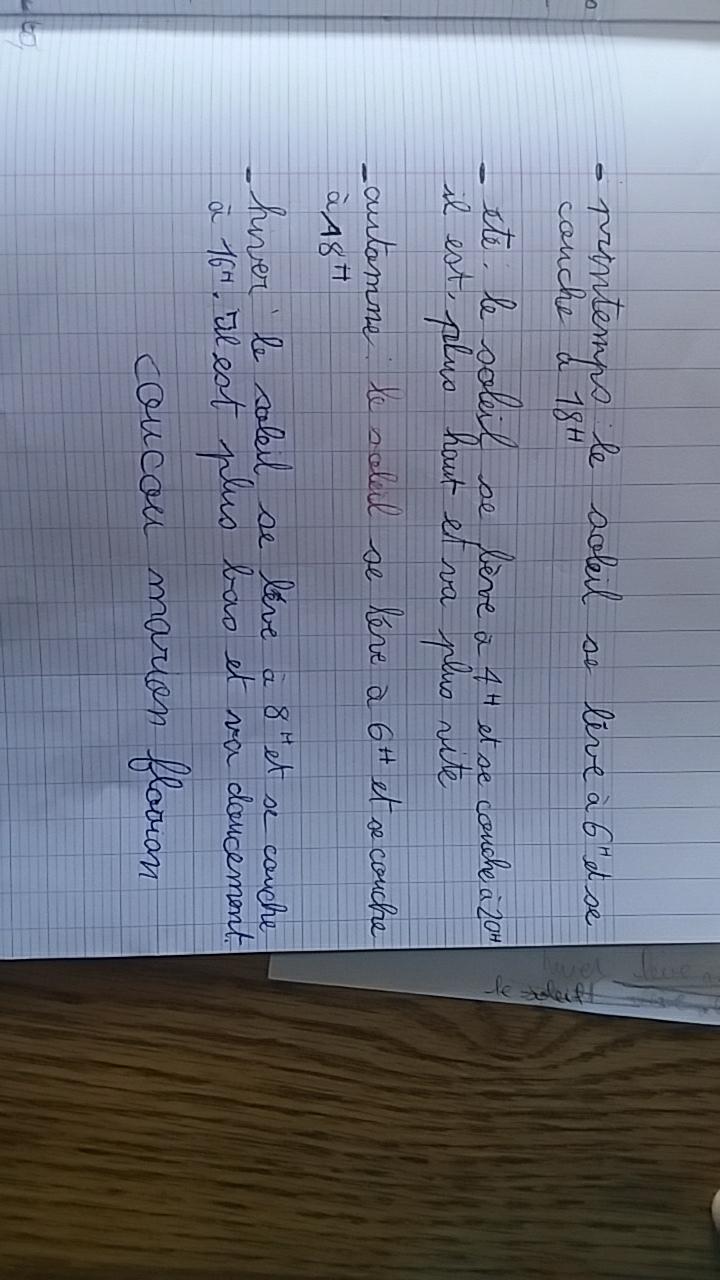 - printemps : le soleil se lève à 6H et se
couche à 18H
- été : le soleil se lève à 4H et se couche à 20H
il est plus haut et va plus vite
- automne : le soleil se lève à 6H et se couche
à 18H
- hiver : le soleil se lève à 8H et se couche
à 16H. Il est plus bas et va doucement.
coucou marion florian
le soleil